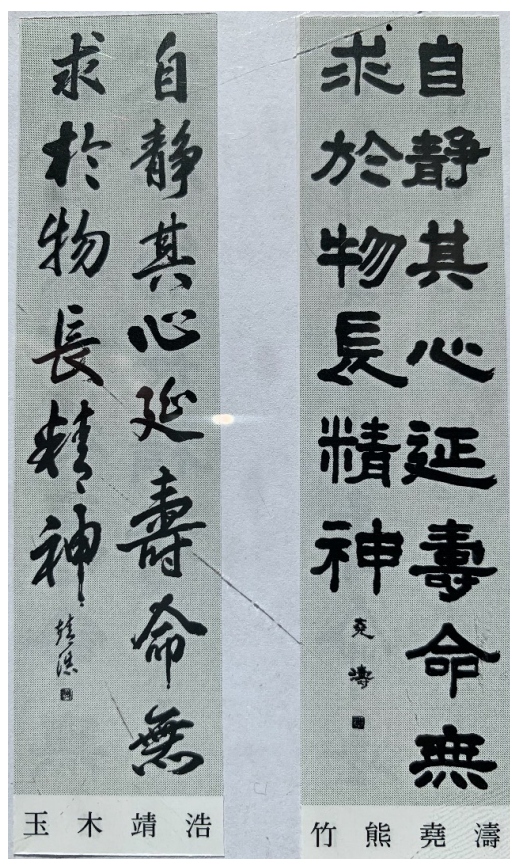 自静其心延壽命無
求於物長精神
尭濤
竹熊堯濤
自静其心延壽命無
求於物長精神
靖浩
玉木靖浩